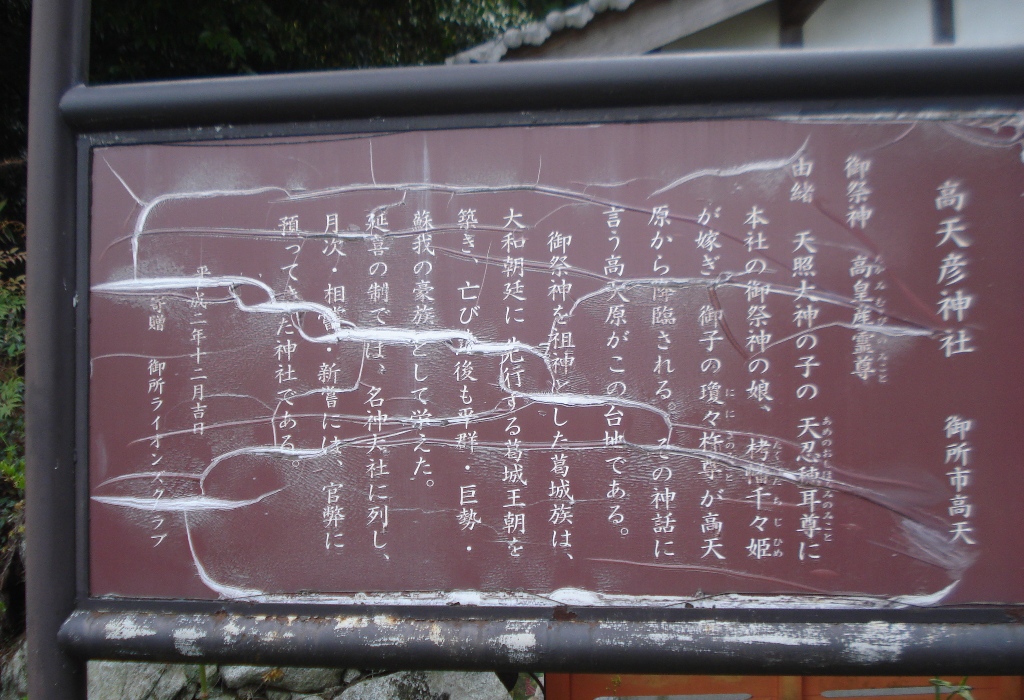 高天彦神社　御所市高天
御祭神　高皇産霊尊
由緒　天照大神の子の天忍穂耳尊に
本社の御祭神の娘、栲幡千々姫
が嫁ぎ、御子の瓊々杵尊が高天
原から降臨される。その神話に
言う高天原がこの台地である。
御祭神を祖神とした葛城族は、
大和朝廷に先行する葛城王朝を
築き、亡びた後も平群・巨勢・
蘇我の豪族として栄えた。
延喜の制では、名神大社に列し、
月次・相嘗・新嘗には、官幣に
預ってきた神社である。
平成二年十二月吉日
寄贈　御所ライオンズクラブ